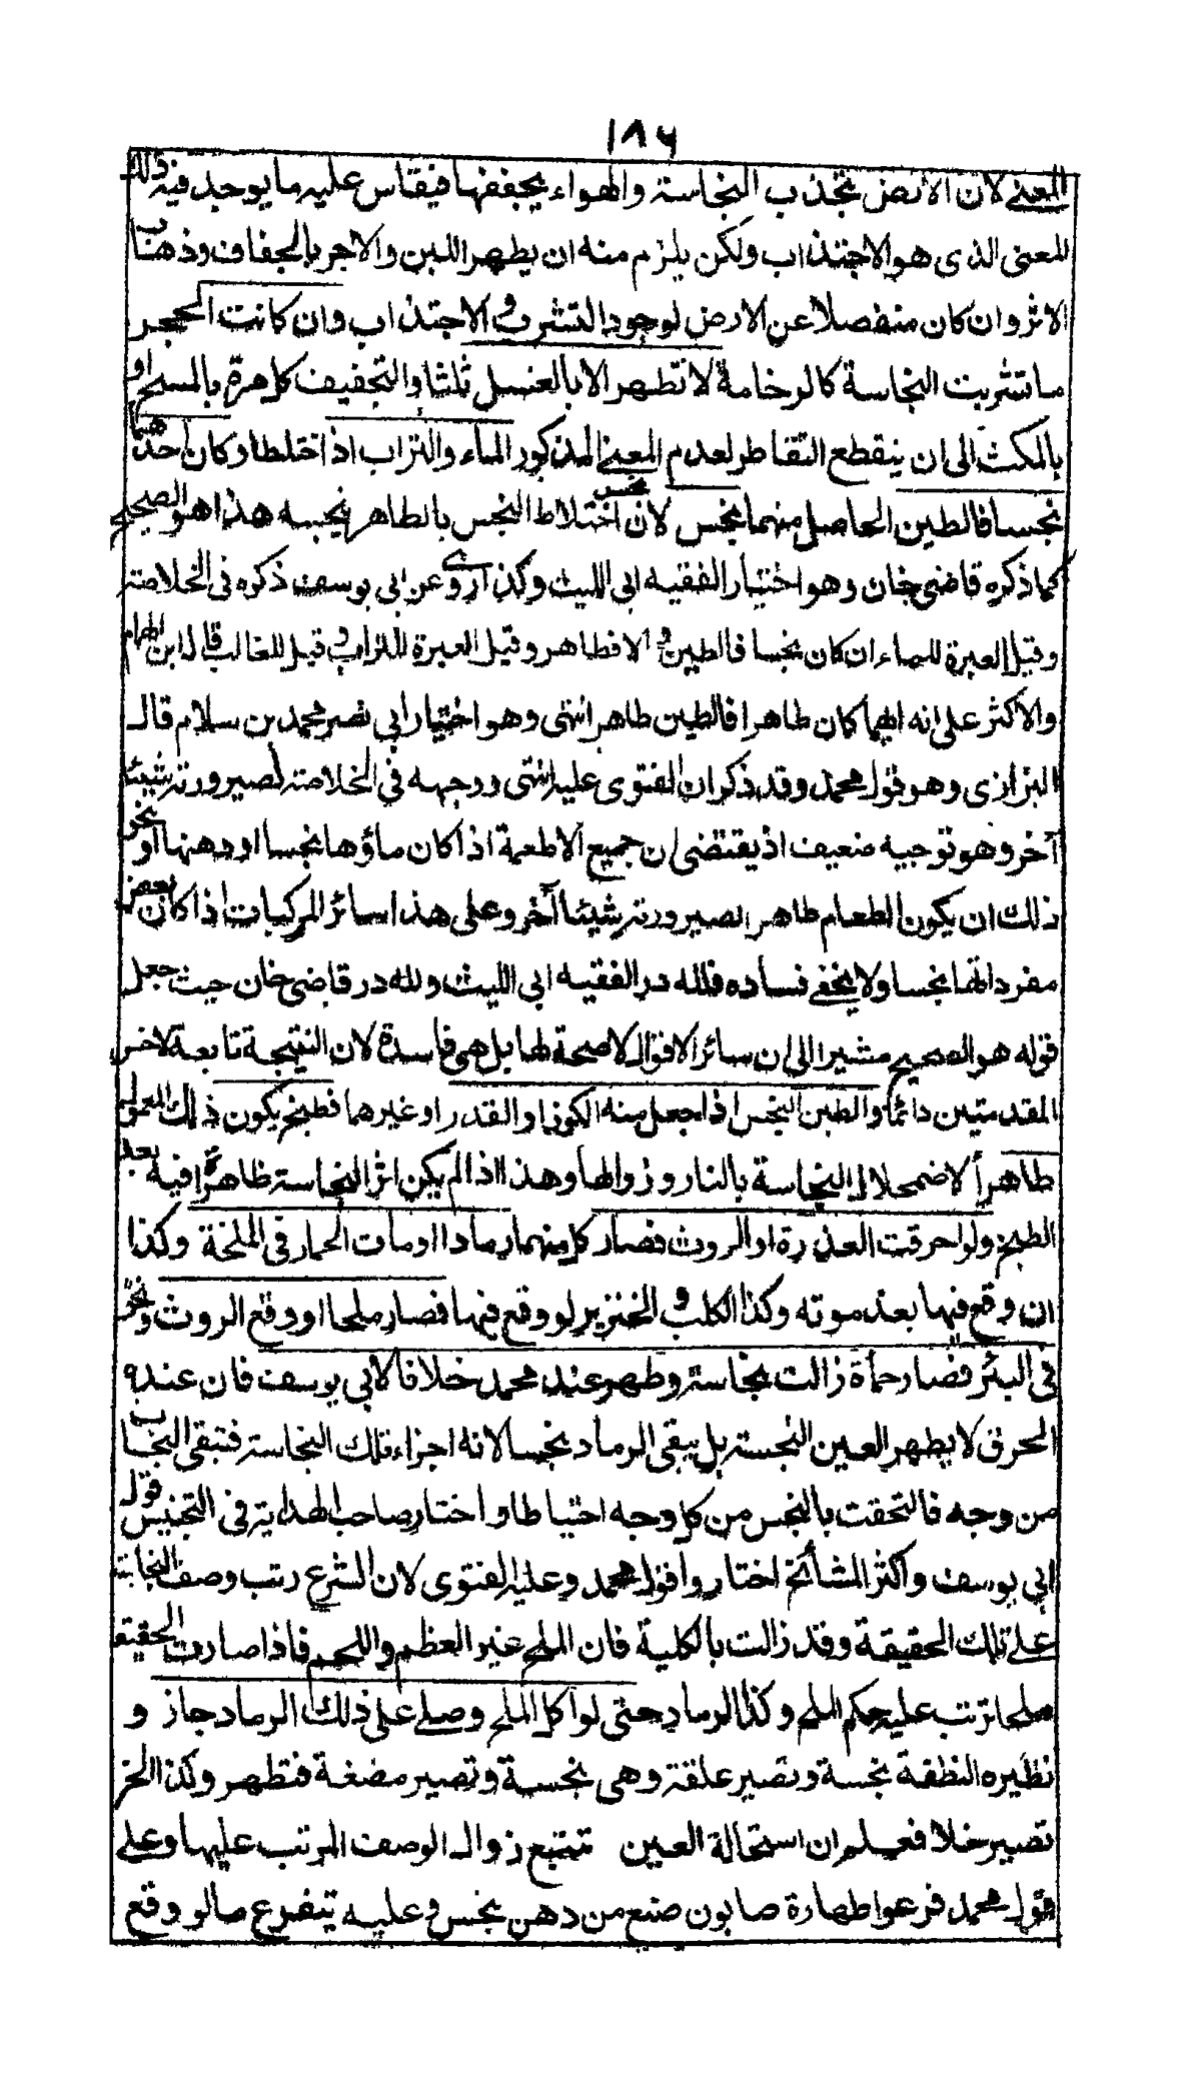 ١٨٦
المعنى لان الارض تجذب النجاسة والهواء يجففها فيقاس عليه ما يوجد فيه ذلك
المعنى الذى هو الاجتذاب ولكن يلزم منه ان يطهر اللبن والاجر بالجفاف وذهاب
الاثر وان كان منفصلا عن الارض لوجود التشرب و الاجتذاب وان كانت الحجر
ما تشربت النجاسة كالرخامة لا تطهر الا بالغسل ثلثا والتجفيف كل مرة بالمسح او
بالمكث الى ان ينقطع التقاطر لعدم المعنى المذكور الماء والتراب اذا اختلطا وكان احدهما
نجسا فالطين الحاصل منهما نجس لان اختلاط النجس بالطاهر ينجسه هذا هو الصحيح
كما ذكره قاضى خان وهو اختيار الفقيه ابى الليث وكذا روى عن ابى يوسف ذكره فى الخلاصة
وقيل العبرة للماء ان كان نجسا فالطين نجس و الا فطاهر وقيل العبرة للتراب و قيل للغالب قال ابن الهمام
والاكثر على انه ايهما كان طاهرا فالطين طاهر انتهى وهو اختيار ابى نصر محمد بن سلام قال
البزازى وهو قول محمد وقد ذكر ان الفتوى عليه انتهى ووجهه فى الخلاصة لصيرورته شيئا
آخر وهو توجيه ضعيف اذ يقتضى ان جميع الاطعمة اذا كان ماؤها نجسا او دهنها او نحو
ذلك ان يكون الطعام طاهر الصيرورته شيئا آخر وعلى هذا سائر المركبات اذا كان بعض
مفرداتها نجسا ولا يخفى فساده فلله در الفقيه ابى الليث ولله در قاضى خان حيث جعل
قوله هو الصحيح مشيرا الى ان سائر الاقوال لا صحة لها بل هى فاسدة لان النتيجة تابعة لاخس
المقدمتين دائما والطين النجس اذا جعل منه الكوز او القدر او غيرهما فطبخ يكون ذلك المعمول
طاهرا لاضمحلال النجاسة بالنار وزوالها وهذا اذا لم يكن اثر النجاسة ظاهرا فيه بعد
الطبخ ولو احرقت العذرة او الروث فصار كل منهما رمادا او مات الحمار فى الملحة وكذا
ان وقع فيها بعد موته وكذا الكلب و الخنزير لو وقع فيها فصار ملحا او وقع الروث ونحوه
فى البئر فصار حمأة زالت نجاسته وطهر عند محمد خلافا لابى يوسف فان عنده
الحرق لا يطهر العين النجسة بل يبقى الرماد نجسا لانه اجزاء تلك النجاسة فتبقى النجاسة
من وجه فالتحقت بالنجس من كل وجه احتياطا و اختار صاحب الهداية فى التجنيس قول
ابى يوسف واكثر المشائخ اختاروا قول محمد وعليه الفتوى لان الشرع رتب وصف النجاسة
على تلك الحقيقة وقد زالت بالكلية فان الملح غير العظم واللحم فاذا صارت الحقيقة
ملحا ترتب عليه حكم الملح وكذا الرماد حتى لو اكل الملح وصلى على ذلك الرماد جاز و
نظيره النطفة نجسة وتصير علقة وهى نجسة وتصير مضغة فتطهر وكذا الخمر
تصير خلا فعلم ان استحالة العين تتبع زوال الوصف المرتب عليها وعلى
قول محمد فرعوا طهارة صابون صنع من دهن نجس و عليه يتفرع ما لو وقع